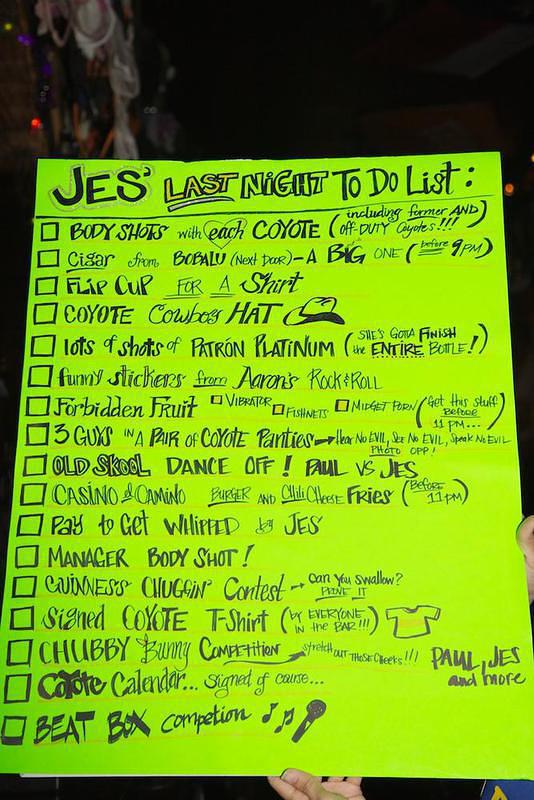 JES' LAST NIGHT TO DO LIST:
BODY SHOTS with each COYOTE (including former AND off-DUTY Coyotes!!!)
Cigar from BOBALU (Next Door) - A BIG ONE (before 9PM)
FLIP CUP FOR A Shirt
COYOTE Cowboy HAT
lots of shots of PATRÓN PLATINUM (SHE'S GOTTA FINISH the ENTIRE BOTTLE!)
funny stickers from Aaron's ROCK & ROLL
Forbidden Fruit VIBRATOR FISHNETS MIDGET PORN (Get this stuff BEFORE 11 PM...)
3 GUYS IN A PAIR OF COYOTE Panties → Hear No EVIL, See No EVIL, Speak No EVIL PHOTO OPP!
OLD SKOOL DANCE OFF! PAUL VS JES
CASINO el CAMINO BURGER AND Chili Cheese FRIES (Before 11PM)
PAY to Get WHIPPED by JES
MANAGER BODY SHOT!
GUINNESS CHUGGIN' Contest → can you swallow? PROVE IT
Signed COYOTE T-Shirt (by EVERYONE IN the BAR!!!)
CHUBBY Bunny COMPETITION → stretch out THOSE Cheeks!!! PAUL, JES and more
COYOTE Calendar... signed of course...
BEAT BOX competion